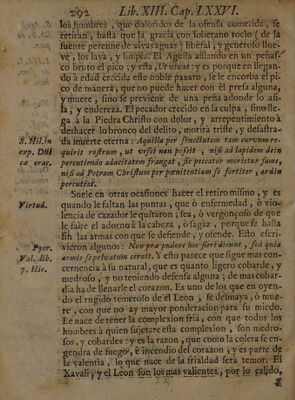 292 Lib. XIII. Cap. LXXVI.
los hombres, que doloridos de la ofensa cometida, se
retiran, hasta que la gracia con soberano tocto (de la
fuente perenne de vivas aguas) liberal, y generoso llue-
ve, los lava, y limpia. El Aguila afilando en un peñas-
co bruto el pico; y esta, es porque en llegan-
do à edad crecida este noble paxaro, se le encorba el pi-
co de manera, que no puede hacer con èl presa alguna,
y muere, sino se previene de una peña adonde lo afi-
la, y endereza. El pecador crecido en la culpa, sino lle-
ga à la Piedra Christo con dolor, y arrepentimiento à
deshacer lo bronco del delito, morirà triste, y desastra-
S. Hil. in da muerte eterna: Aquilla per senectutem tam curvum re-
exp. Dili quirit rostrum, ut vesci non possit, nisi ad lapidem dein
ca orac. percutiendo aduncitatem frangat, sic peccator morietur fame,
nisi ad Petram Christum per pœnitentiam se fortiter, acdiu
percutiat.
Suele en otras ocasiones hacer el retiro mismo, y es
Virtud. quando le faltan las puntas, que ò enfermedad, ò vio-
lencia de cazador le quitaron; sea, ò vergonçoso de que
le falte el adorno à la cabeza, ò sagàz, porque se halla
sin las armas con que se defiende, y ofende. Esto escri-
Pyer. vieron algunos: Non præ pudore hoc fieri dicunt, sed quia
Val. lib. armis se privatum cernit. Y esto parece que sigue mas con-
7. Hie. cernencia à su natural, que es quanto ligero cobarde, y
medroso, y no teniendo defensa alguna; de mas cobar-
dia ha de llenarle el corazon. Es uno de los que en oyen-
do el rugido temeroso de el Leon, se desmaya, ò mue-
re, con que no ay mayor ponderacion para su miedo.
Le nace de tener la complexion fria, con que todos los
hombres à quien sujetare esta complexion, son medro-
sos, y cobardes: y es la razon, que como la colera se en-
gendra de fuego, è incendio del corazon, y es parte de
la valentia, lo que nace de la frialdad serà temor. El
Xavalì, y el Leon son los mas valientes, por lo calido,